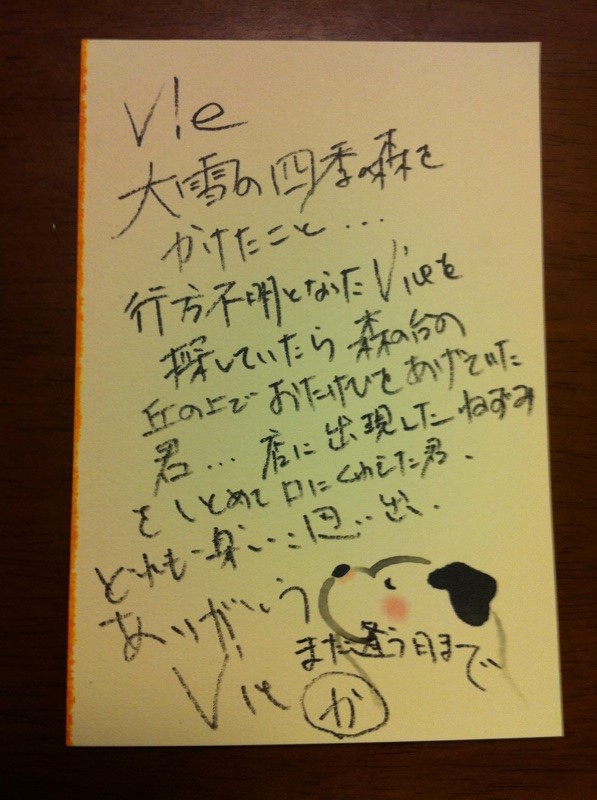 V!e
大雪の四季の森を
かけたこと...
行方不明となったVieを
探していたら 森の台の
丘の上で おたけびを あげていた
君... 店に 出現した ねずみ
を しとめて 口にくわえた君.
どれも 楽しい 思い出.
ありがとう
また逢う日まで
Vie
か